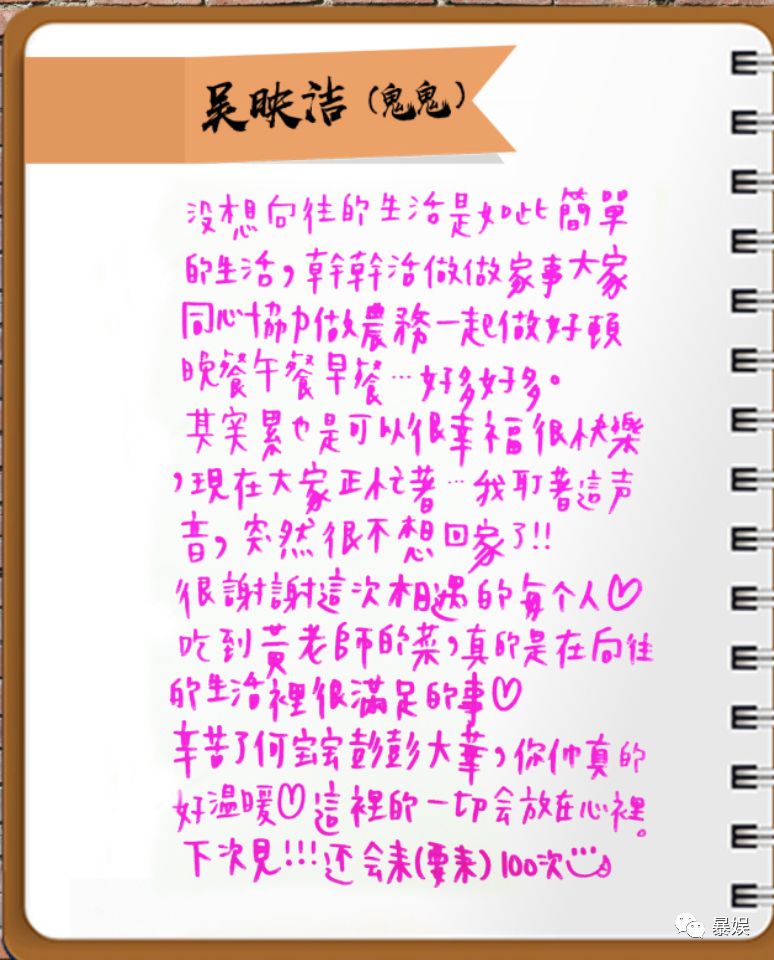 吴映洁（鬼鬼）
没想向往的生活是如此簡單
的生活，幹幹活做做家事大家
同心協力做農務一起做好頓
晚餐午餐早餐…好多好多。
其实累也是可以很幸福很快樂
，現在大家正忙著…我耵著這声
音，突然很不想回家了!!
很謝謝這次相遇的每个人♡
吃到黃老師的菜，真的是在向往
的生活裡很滿足的事♡
辛苦了何宝宝彭彭大華，你们真的
好温暖♡這裡的一切会放在心裡。
下次見!!!还会来(要来)100次
暴娱